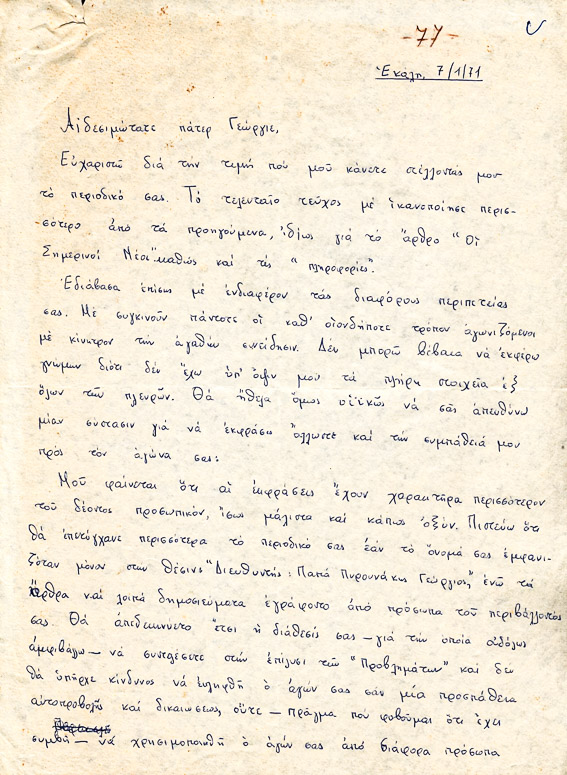 -77-
Ἐκάλη, 7/1/71
Αἰδεσιμώτατε πάτερ Γεώργιε,
Εὐχαριστῶ διά την τιμή πού μοῦ κάνετε στέλλοντάς μου
τό περιοδικό σας. Τό τελευταῖο τεῦχος μέ ἱκανοποίησε περισ-
σότερο ἀπό τά προηγούμενα, ἰδίως γιά τό ἄρθρο "Οἱ
Σημερινοί Νέοι" καθώς καί τίς "πληροφορίες".
Ἐδιάβασα ἐπίσης μέ ἐνδιαφέρον τάς διαφόρους περιπετείας
σας. Μέ συγκινοῦν πάντοτε οἱ καθ' οἱονδήποτε τρόπον ἀγωνιζόμενοι
μέ κίνητρον τήν ἀγαθήν συνείδησιν. Δέν μπορῶ βέβαια νά ἐκφέρω
γνώμην διότι δέν ἔχω ὑπ' ὄψιν μου τά πλήρη στοιχεῖα ἐξ
ὅλων τῶν πλευρῶν. Θά ἤθελα ὅμως νά σᾶς ἀπευθύνω
μίαν σύστασιν γιά νά ἐκφράσω ἄλλωστε καί τήν συμπάθειά μου
πρός τόν ἀγῶνα σας:
Μοῦ φαίνεται ὅτι αἱ ἐκφράσεις ἔχουν χαρακτῆρα περισσότερον
τοῦ δέοντος προσωπικόν, ἴσως μάλιστα καί κάπως ὀξύν. Πιστεύω ὅτι
θά ἐπετύγχανε περισσότερα τό περιοδικό σας ἐάν τό ὄνομά σας ἐμφανι-
ζόταν μόνον στην θέσιν "Διευθυντής: Παπᾶ Πυρουνάκης Γεώργιος," ἐνῶ τά
ἄρθρα καί λοιπά δημοσιεύματα ἐγράφοντο ἀπό πρόσωπα τοῦ περιβάλλοντος
σας. Θά ἀπεδεικνύετο ἔτσι ἡ διάθεσίς σας — γιά τήν ὁποία
ἀμφιβάλω — νά συντελέσετε στήν ἐπίλυσι τῶν "Προβλημάτων" καί δέν
θά ὑπῆρχε κίνδυνος νά ἐκληφθῆ ὁ ἀγών σας σάν μία προσπάθεια
αὐτοπροβολῆς καί δικαιώσεως, οὔτε — πρᾶγμα πού φοβοῦμαι ὅτι ἔχει
συμβῆ — νά χρησιμοποιηθῆ ὁ ἀγών σας ἀπό διάφορα πρόσωπα